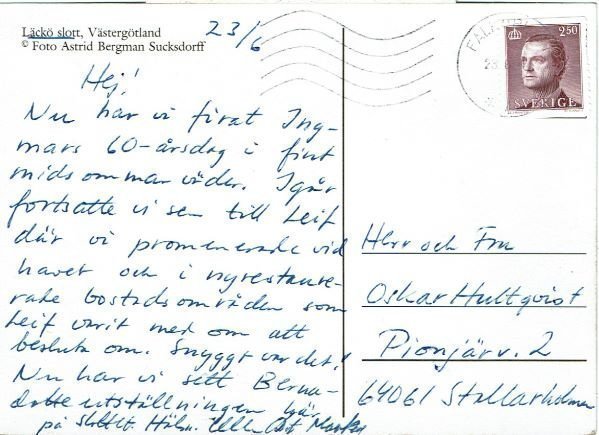 Läckö slott, Västergötland
© Foto Astrid Bergman Sucksdorff
23/6
Hej!
Nu har vi firat Ing-
mars 60-årsdag i fint
midsommarväder. Igår
fortsatte vi sen till Leif
där vi promenerade vid
havet och i nyrestaure-
rade bostadsområden som
Leif varit med om att
besluta om. Snyggt var det!
Nu har vi sett Berna-
dotteutställningen här
på slottet. Häls.
Herr och Fru
Oskar Hultqvist
Pionjärv. 2
64061 Stallarholmen
250
SVERIGE